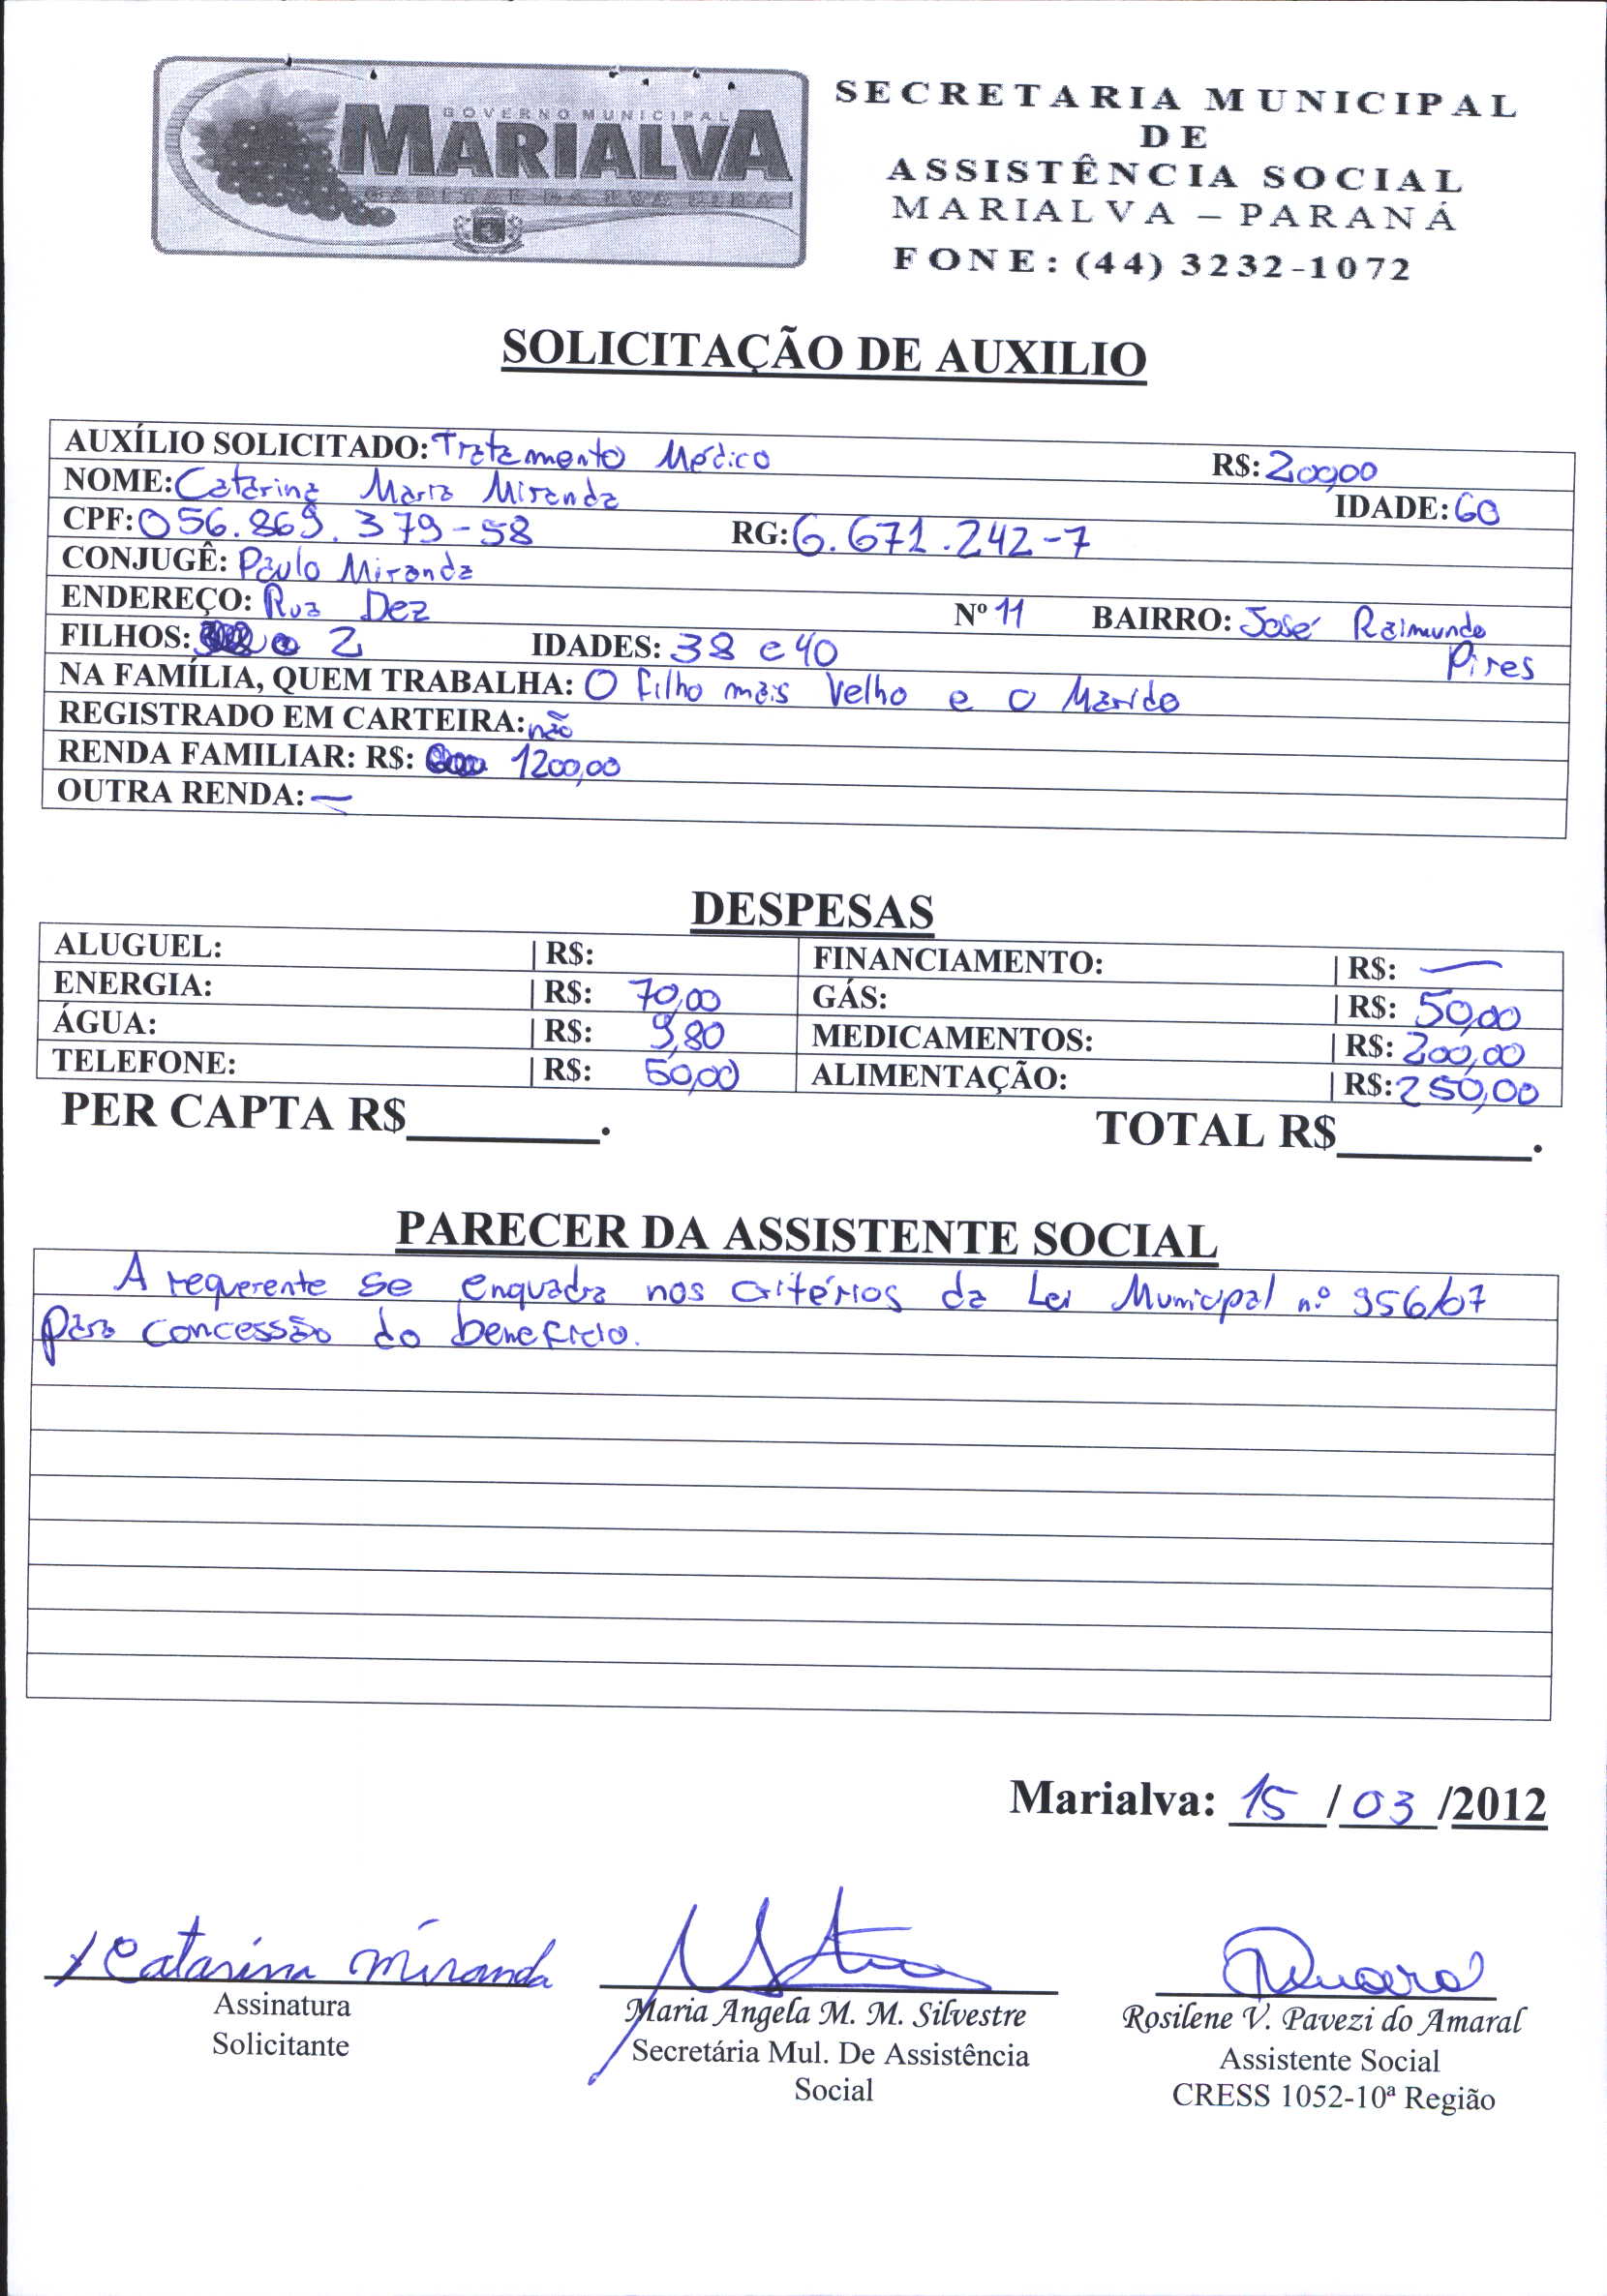 GOVERNO MUNICIPAL
MARIALVA
CAPITAL DA UVA FINA
SECRETARIA MUNICIPAL
DE
ASSISTÊNCIA SOCIAL
MARIALVA – PARANÁ
FONE: (44) 3232-1072
SOLICITAÇÃO DE AUXILIO
AUXÍLIO SOLICITADO: Tratamento Médico R$: 200,00
NOME: Catarina Maria Miranda IDADE: 60
CPF: 056.869.379-58 RG: 6.671.242-7
CONJUGÊ: Paulo Miranda
ENDEREÇO: Rua Dez Nº 11 BAIRRO: José Raimundo
Pires
FILHOS: 2 IDADES: 38 e 40
NA FAMÍLIA, QUEM TRABALHA: O filho mais Velho e o Marido
REGISTRADO EM CARTEIRA: não
RENDA FAMILIAR: R$: 1200,00
OUTRA RENDA: —
DESPESAS
ALUGUEL: | R$: FINANCIAMENTO: | R$: —
ENERGIA: | R$: 70,00 GÁS: | R$: 50,00
ÁGUA: | R$: 9,80 MEDICAMENTOS: | R$: 200,00
TELEFONE: | R$: 50,00 ALIMENTAÇÃO: | R$: 250,00
PER CAPTA R$________. TOTAL R$________.
PARECER DA ASSISTENTE SOCIAL
A requerente se enquadra nos critérios da Lei Municipal n.º 956/07
para concessão do benefício.
Marialva: 15 / 03 /2012
Catarina Miranda
Assinatura
Solicitante
Maria Angela M. M. Silvestre
Secretária Mul. De Assistência
Social
Rosilene V. Pavezi do Amaral
Assistente Social
CRESS 1052-10ª Região